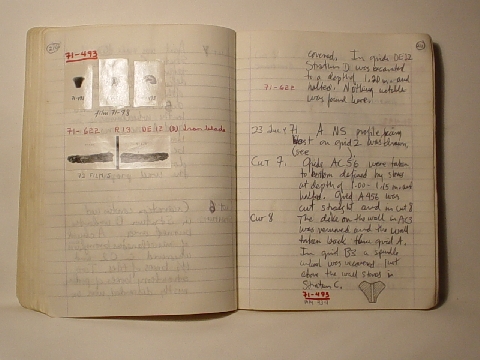 71-493
71-622 R13 DE12 (D) Iron blade
covered. In grid DE12
Stratum D was excavated
to a depth of 1.20 m and
halted. Nothing notable
71-622
was found here.
23 July 71 A NS profile, facing
East on grid 2 was drawn,
See
Cut 7. Grids AC56 were taken
to bottom defined by stones
at depth of 1.00-1.15 m and
halted. Grid A456 was
cut straight and in Cut 8
Cut 8 The dike on the wall in
was removed and the wall
taken back thru grid A.
In grid B3 a spindle
whorl was recovered just
above the wall stones in
Stratum C.
71-493